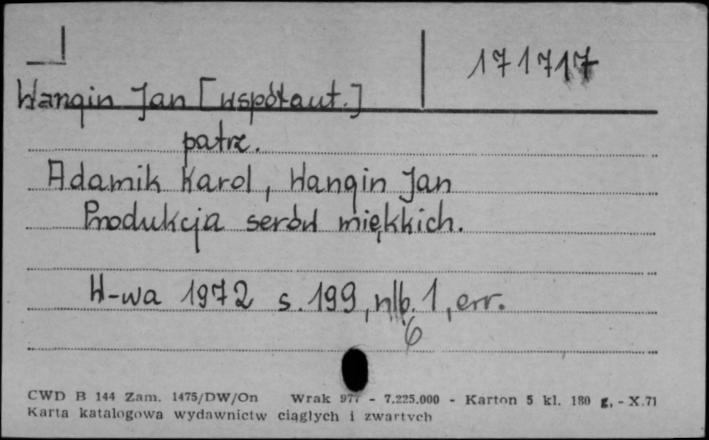 171717
Wangin Jan [współaut.]
patrz.
Adamik Karol, Wangin Jan
Produkcja serów miękkich.
W-wa 1972 s. 199, nlb. 1, err.
6
CWD B 144 Zam. 1475/DW/On Wrak 977 - 7.225.000 - Karton 5 kl. 180 g, - X.71
Karta katalogowa wydawnictw ciągłych i zwartych